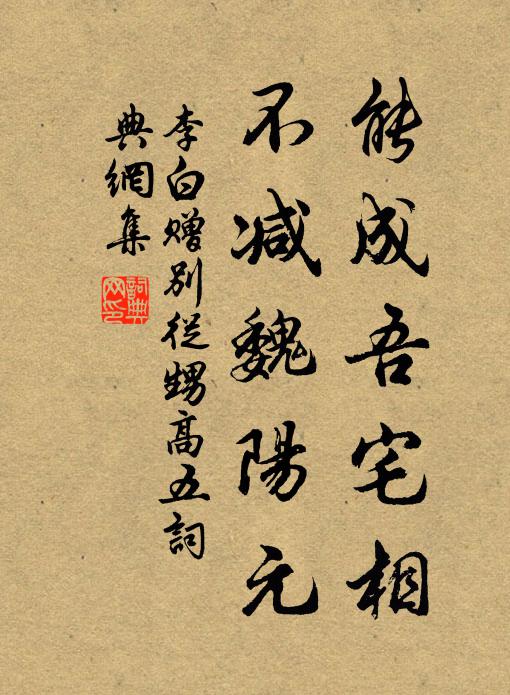 能成吾宅相
不减魏陽元
李白赠别從甥高五詞
典網集
詞典
网印